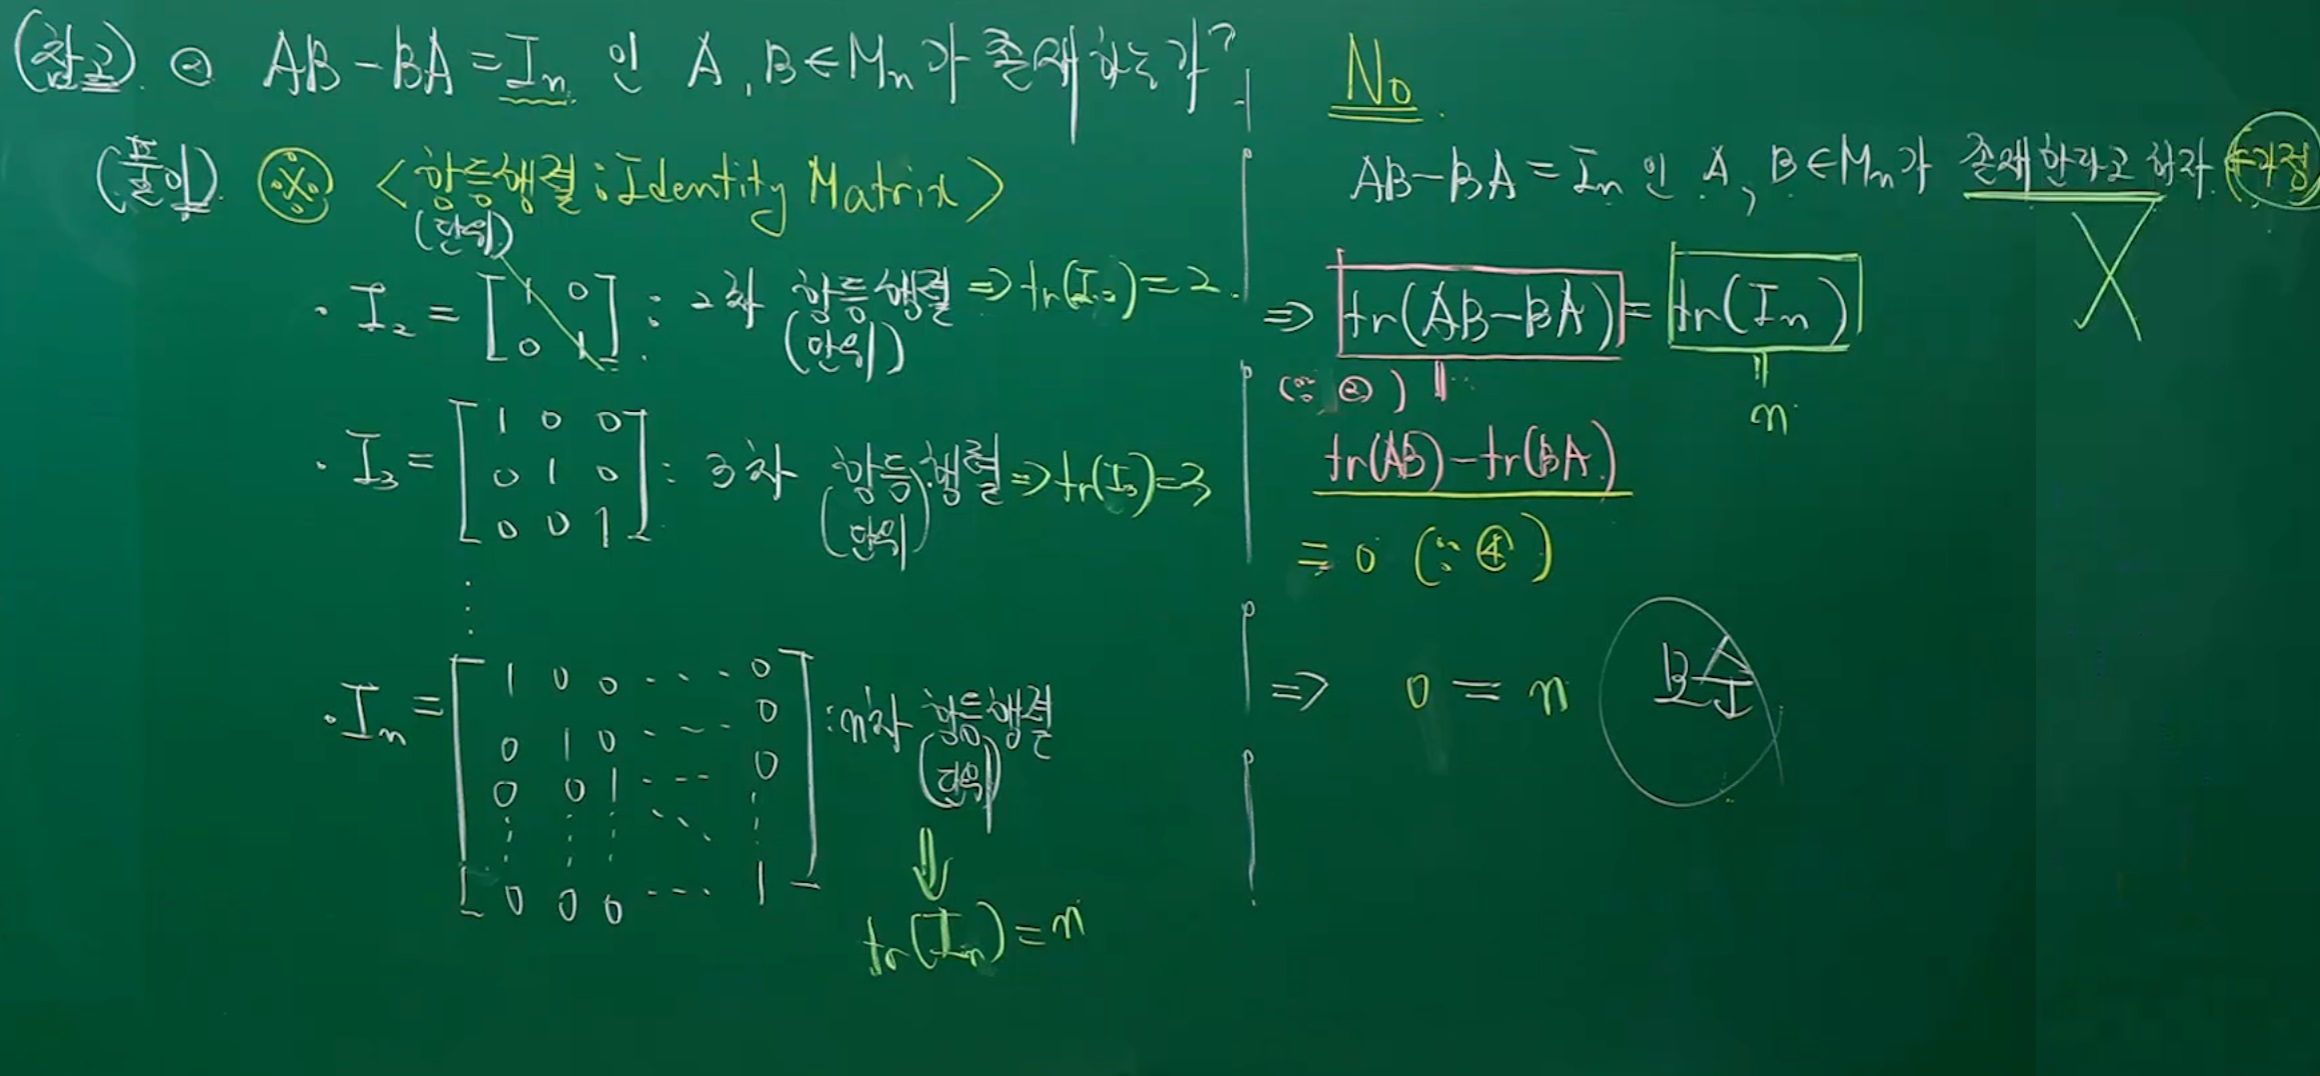 (참고). ② AB-BA=In 인 A, B∈Mn가 존재하는가?
(풀이). ※ <항등행렬 : Identity Matrix>
(단위)
· I₂ = [1 0
0 1] : 2차 항등행렬 ⇒ tr(I₂)=2.
(단위)
· I₃ = [1 0 0
0 1 0
0 0 1] : 3차 항등행렬 ⇒ tr(I₃)=3
(단위)
⋮
· In = [1 0 0 ··· 0
0 1 0 ··· 0
0 0 1 ··· 0
⋮ ⋮ ⋮ ⋱ ⋮
0 0 0 ··· 1] : n차 항등행렬
(단위)
⇓
tr(In)=n
No.
AB-BA=In 인 A, B∈Mn가 존재한다고 하자. ←가정
X
⇒ tr(AB-BA) = tr(In)
(∵ ②) ‖ ‖
n
tr(AB)-tr(BA)
= 0 (∵ ④)
⇒ 0 = n 모순